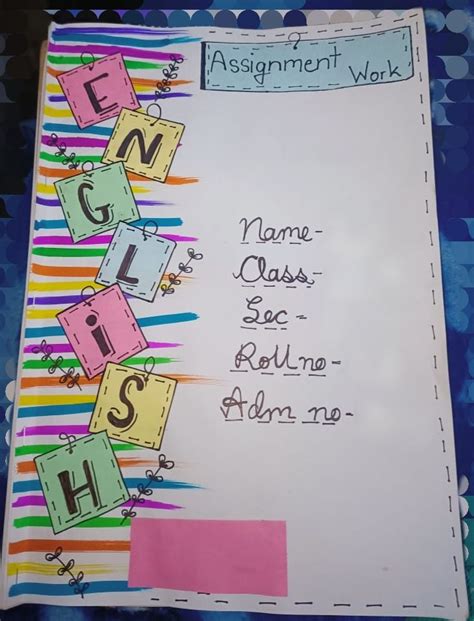 Assignment Work
E
N
G
L
i
S
H
Name-
Class-
Sec-
Roll no-
Adm no-